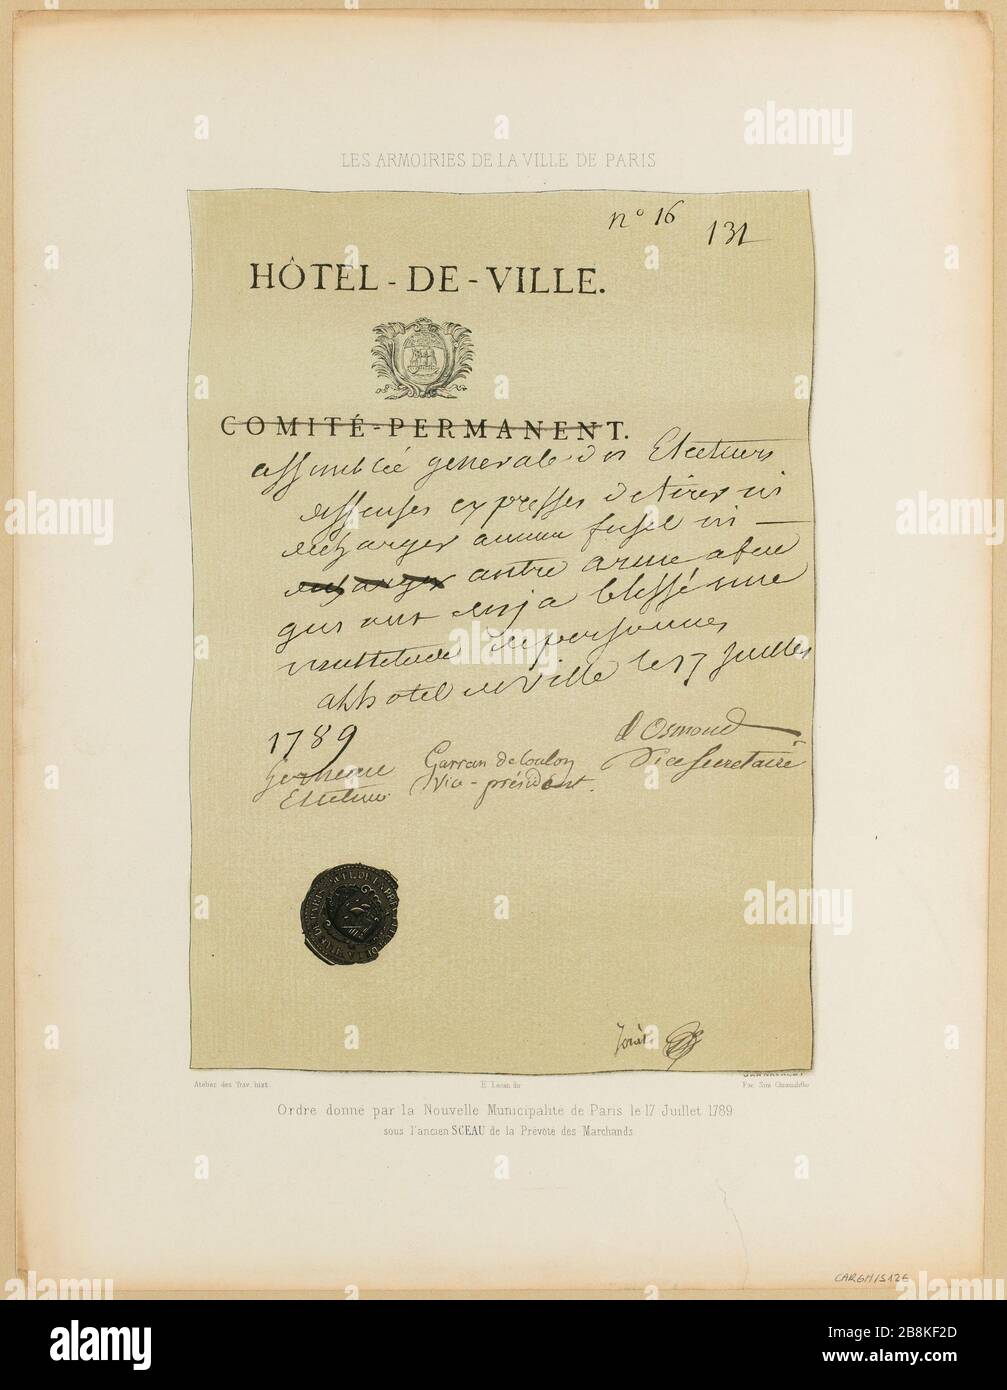 LES ARMOIRIES DE LA VILLE DE PARIS
nº 16
131
HÔTEL-DE-VILLE.
COMITÉ-PERMANENT.
assemblée generale des Electeurs
deffenses expresses de tirer ni
decharger aucun fusel ni
decharger autre arme afeu
qui ont deja blessé une
multitude de personnes
alhotel de Ville le 17 Juillet
1789
d'Osmond
Vice Secretaire
Garran de Coulon
Vice-président.
Electeur
SCEL DE LA PREV
Atelier des Trav. hist.
Fac. Sim.
Ordre donné par la Nouvelle Municipalité de Paris le 17 Juillet 1789
sous l'ancien SCEAU de la Prévôté des Marchands.
CARGHIS12E
alamy
a
alamy
Image ID: 2B8KF2D
www.alamy.com